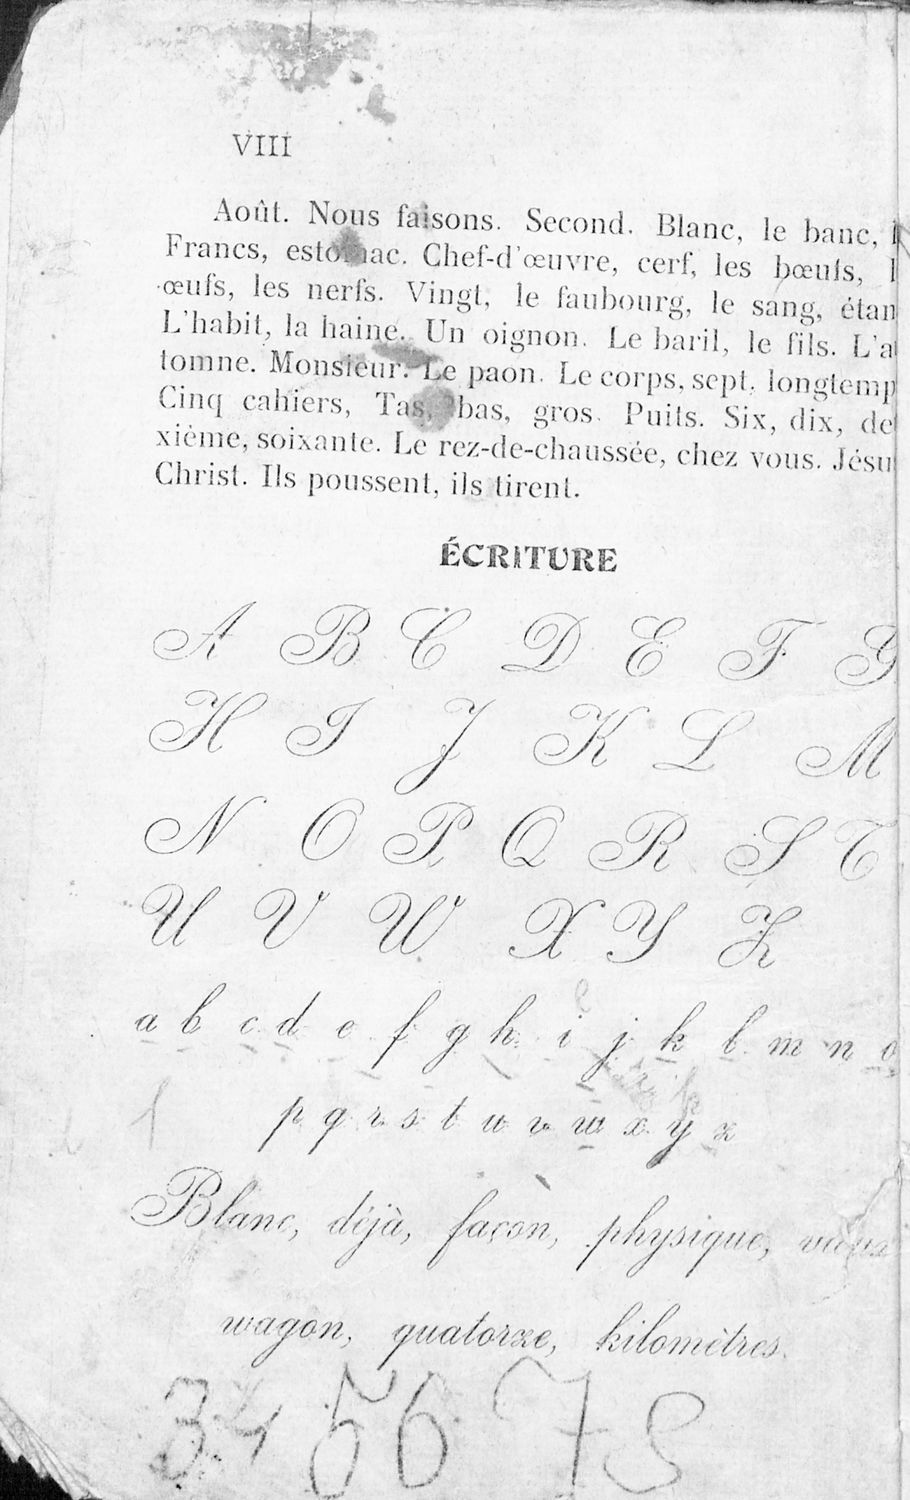 VIII
Août. Nous faisons. Second. Blanc, le banc, l
Francs, estomac. Chef-d'œuvre, cerf, les bœufs, l
œufs, les nerfs. Vingt, le faubourg, le sang, étan
L'habit, la haine. Un oignon. Le baril, le fils. L'a
tomne. Monsieur. Le paon. Le corps, sept, longtemp
Cinq cahiers, Tas, bas, gros. Puits. Six, dix, de
xième, soixante. Le rez-de-chaussée, chez vous. Jésu
Christ. Ils poussent, ils tirent.
ÉCRITURE
A B C D E F G
H I J K L M
N O P Q R S T
U V W X Y Z
a b c d e f g h i j k l m n o
p q r s t u v w x y z
Blanc, déjà, façon, physique,
wagon, quatorze, kilomètres.
3 4 5 6 7 8